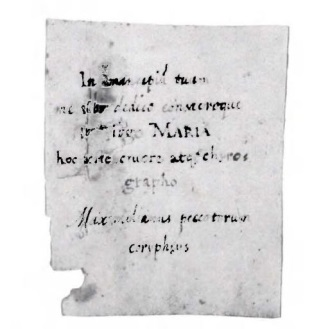 In mancipiu tuum
me tibi dedico consecroque
Virgo MARIA
hoc teste cruore atq chyro
grapho
Maximilianus peccatorum
coryphæus